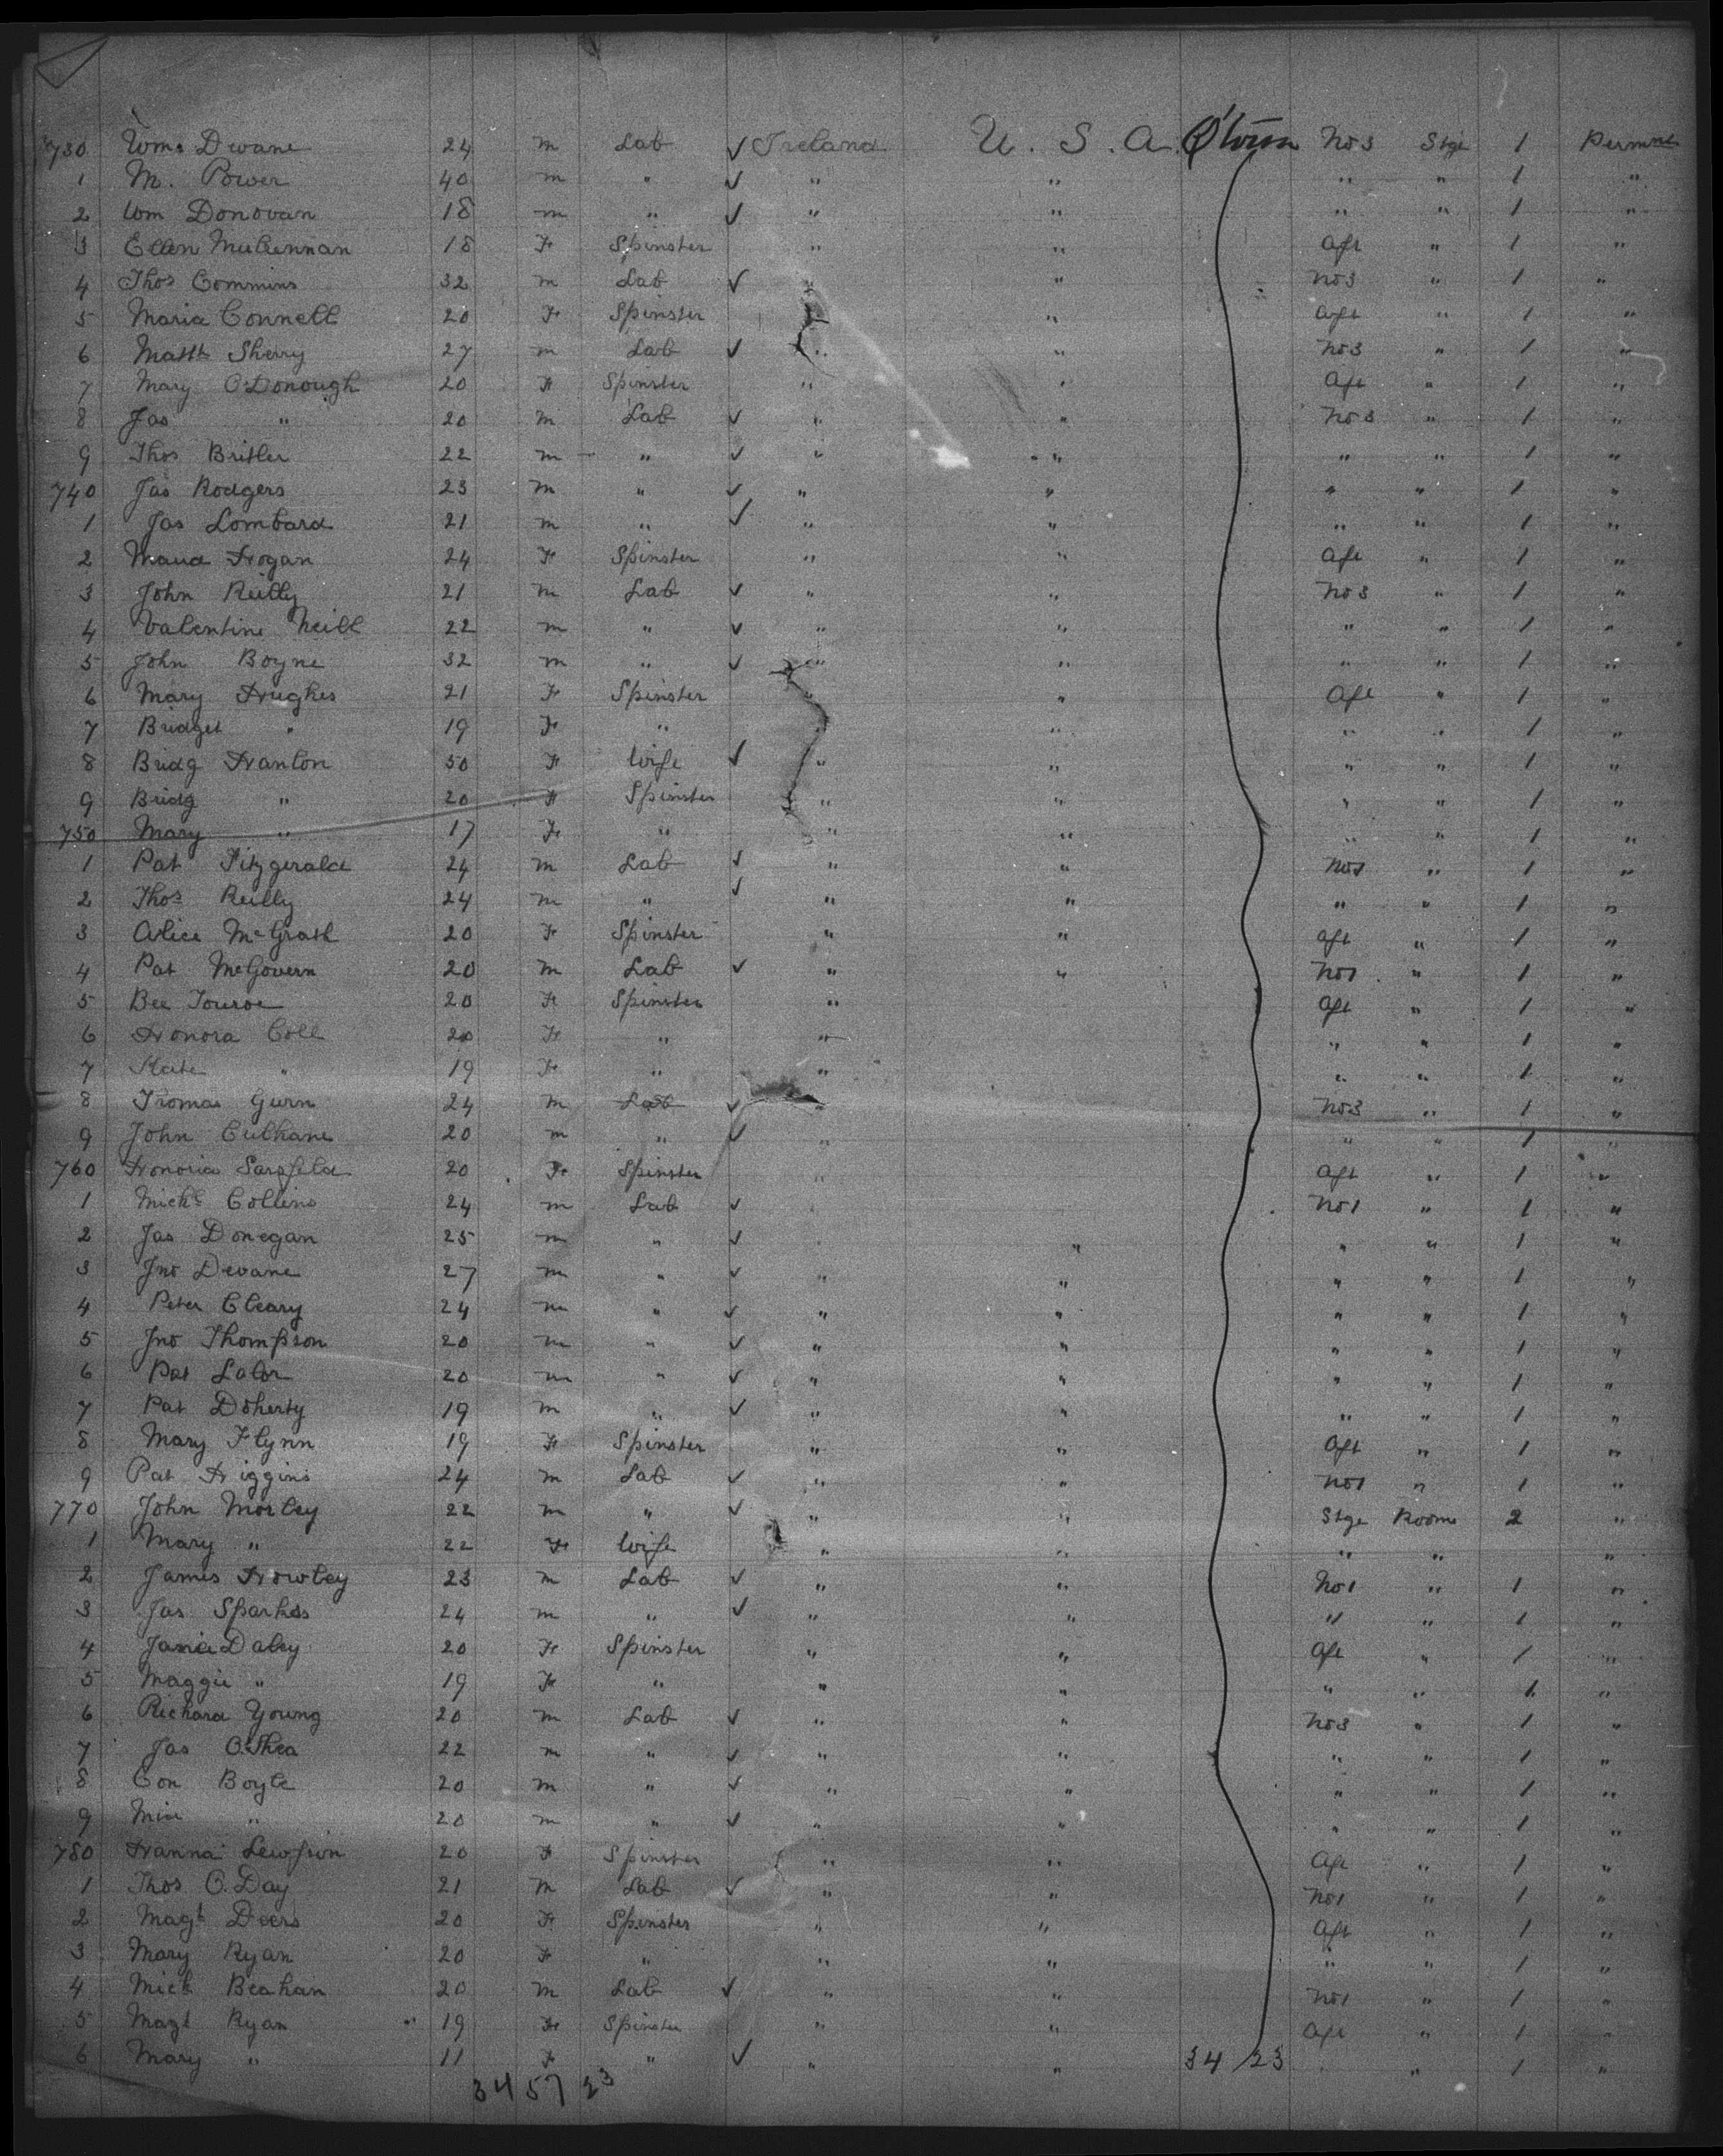 730 Wm. Dwane 24 m Lab ✓ Ireland U. S. A. Q'town No 3 Stge 1 Permnt
1 M. Power 40 m " ✓ " " " " 1 "
2 Wm Donovan 18 m " ✓ " " " " 1 "
3 Ellen 18 F Spinster " " Aft " 1 "
4 Thos Commins 32 m Lab ✓ " " No 3 " 1 "
5 Maria Connell 20 F Spinster " Aft " 1 "
6 Matth Sherry 27 m Lab ✓ " " No 3 " 1 "
7 Mary O'Donough 20 F Spinster " " Aft " 1 "
8 Jas " 20 m Lab ✓ " " No 3 " 1 "
9 Thos 22 m " ✓ " " " " 1 "
740 Jas Rodgers 23 m " ✓ " " " " 1 "
1 Jas Lombard 21 m " ✓ " " " " 1 "
2 Maud Hogan 24 F Spinster " " Aft " 1 "
3 John Reilly 21 m Lab ✓ " " No 3 " 1 "
4 Valentine Neill 22 m " ✓ " " " " 1 "
5 John Boyne 32 m " ✓ " " " " 1 "
6 Mary Hughes 21 F Spinster " " Aft " 1 "
7 Bridget " 19 F " " " " 1 "
8 Bridg Hanlon 50 F Wife ✓ " " " " 1 "
9 Bridg " 20 F Spinster " " " " 1 "
750 Mary " 17 F " " " " " 1 "
1 Pat Fitzgerald 24 m Lab ✓ " " No 1 " 1 "
2 Thos Reilly 24 m " ✓ " " " " 1 "
3 Alice McGrath 20 F Spinster " " Aft " 1 "
4 Pat McGovern 20 m Lab ✓ " " No 1 " 1 "
5 Bee 20 F Spinster " Aft " 1 "
6 Honora Coll 20 F " " " " 1 "
7 Kate " 19 F " " " " 1 "
8 Thomas Gurn 24 m Lab ✓ " No 3 " 1 "
9 John Culhane 20 m " ✓ " " " 1 "
760 Honoria Sarsfield 20 F Spinster " Aft " 1 "
1 Michl Collins 24 m Lab ✓ No 1 " 1 "
2 Jas Donegan 25 m " ✓ " " " 1 "
3 Jno Devane 27 m " ✓ " " " " 1 "
4 Peter Cleary 24 m " ✓ " " " " 1 "
5 Jno Thompson 20 m " ✓ " " " " 1 "
6 Pat Lalor 20 m " ✓ " " " " 1 "
7 Pat Doherty 19 m " ✓ " " " " 1 "
8 Mary Flynn 19 F Spinster " " Aft " 1 "
9 Pat Higgins 24 m Lab ✓ " " No 1 " 1 "
770 John Morley 22 m " ✓ " " Stge Rooms 2 "
1 Mary " 22 F Wife " " " " "
2 James Howley 23 m Lab ✓ " " No 1 " 1 "
3 Jas Sparkes 24 m " ✓ " " " " 1 "
4 Janie Daly 20 F Spinster " " Aft " 1 "
5 Maggie " 19 F " " " " " 1 "
6 Richard Young 20 m Lab ✓ " " No 3 " 1 "
7 Jas O'Shea 22 m " ✓ " " " " 1 "
8 Con Boyle 20 m " ✓ " " " " 1 "
9 " 20 m " ✓ " " " " 1 "
780 Hanna 20 F Spinster " " Aft " 1 "
1 Thos O.Day 21 m Lab ✓ " " No 1 " 1 "
2 Magt Deers 20 F Spinster " " Aft " 1 "
3 Mary Ryan 20 F " " " " " 1 "
4 Mick Beahan 20 m Lab ✓ " " No 1 " 1 "
5 Magt Ryan 19 F Spinster " " Aft " 1 "
6 Mary " 11 F " ✓ " " 34 / 23 " 1 "
34 57 23